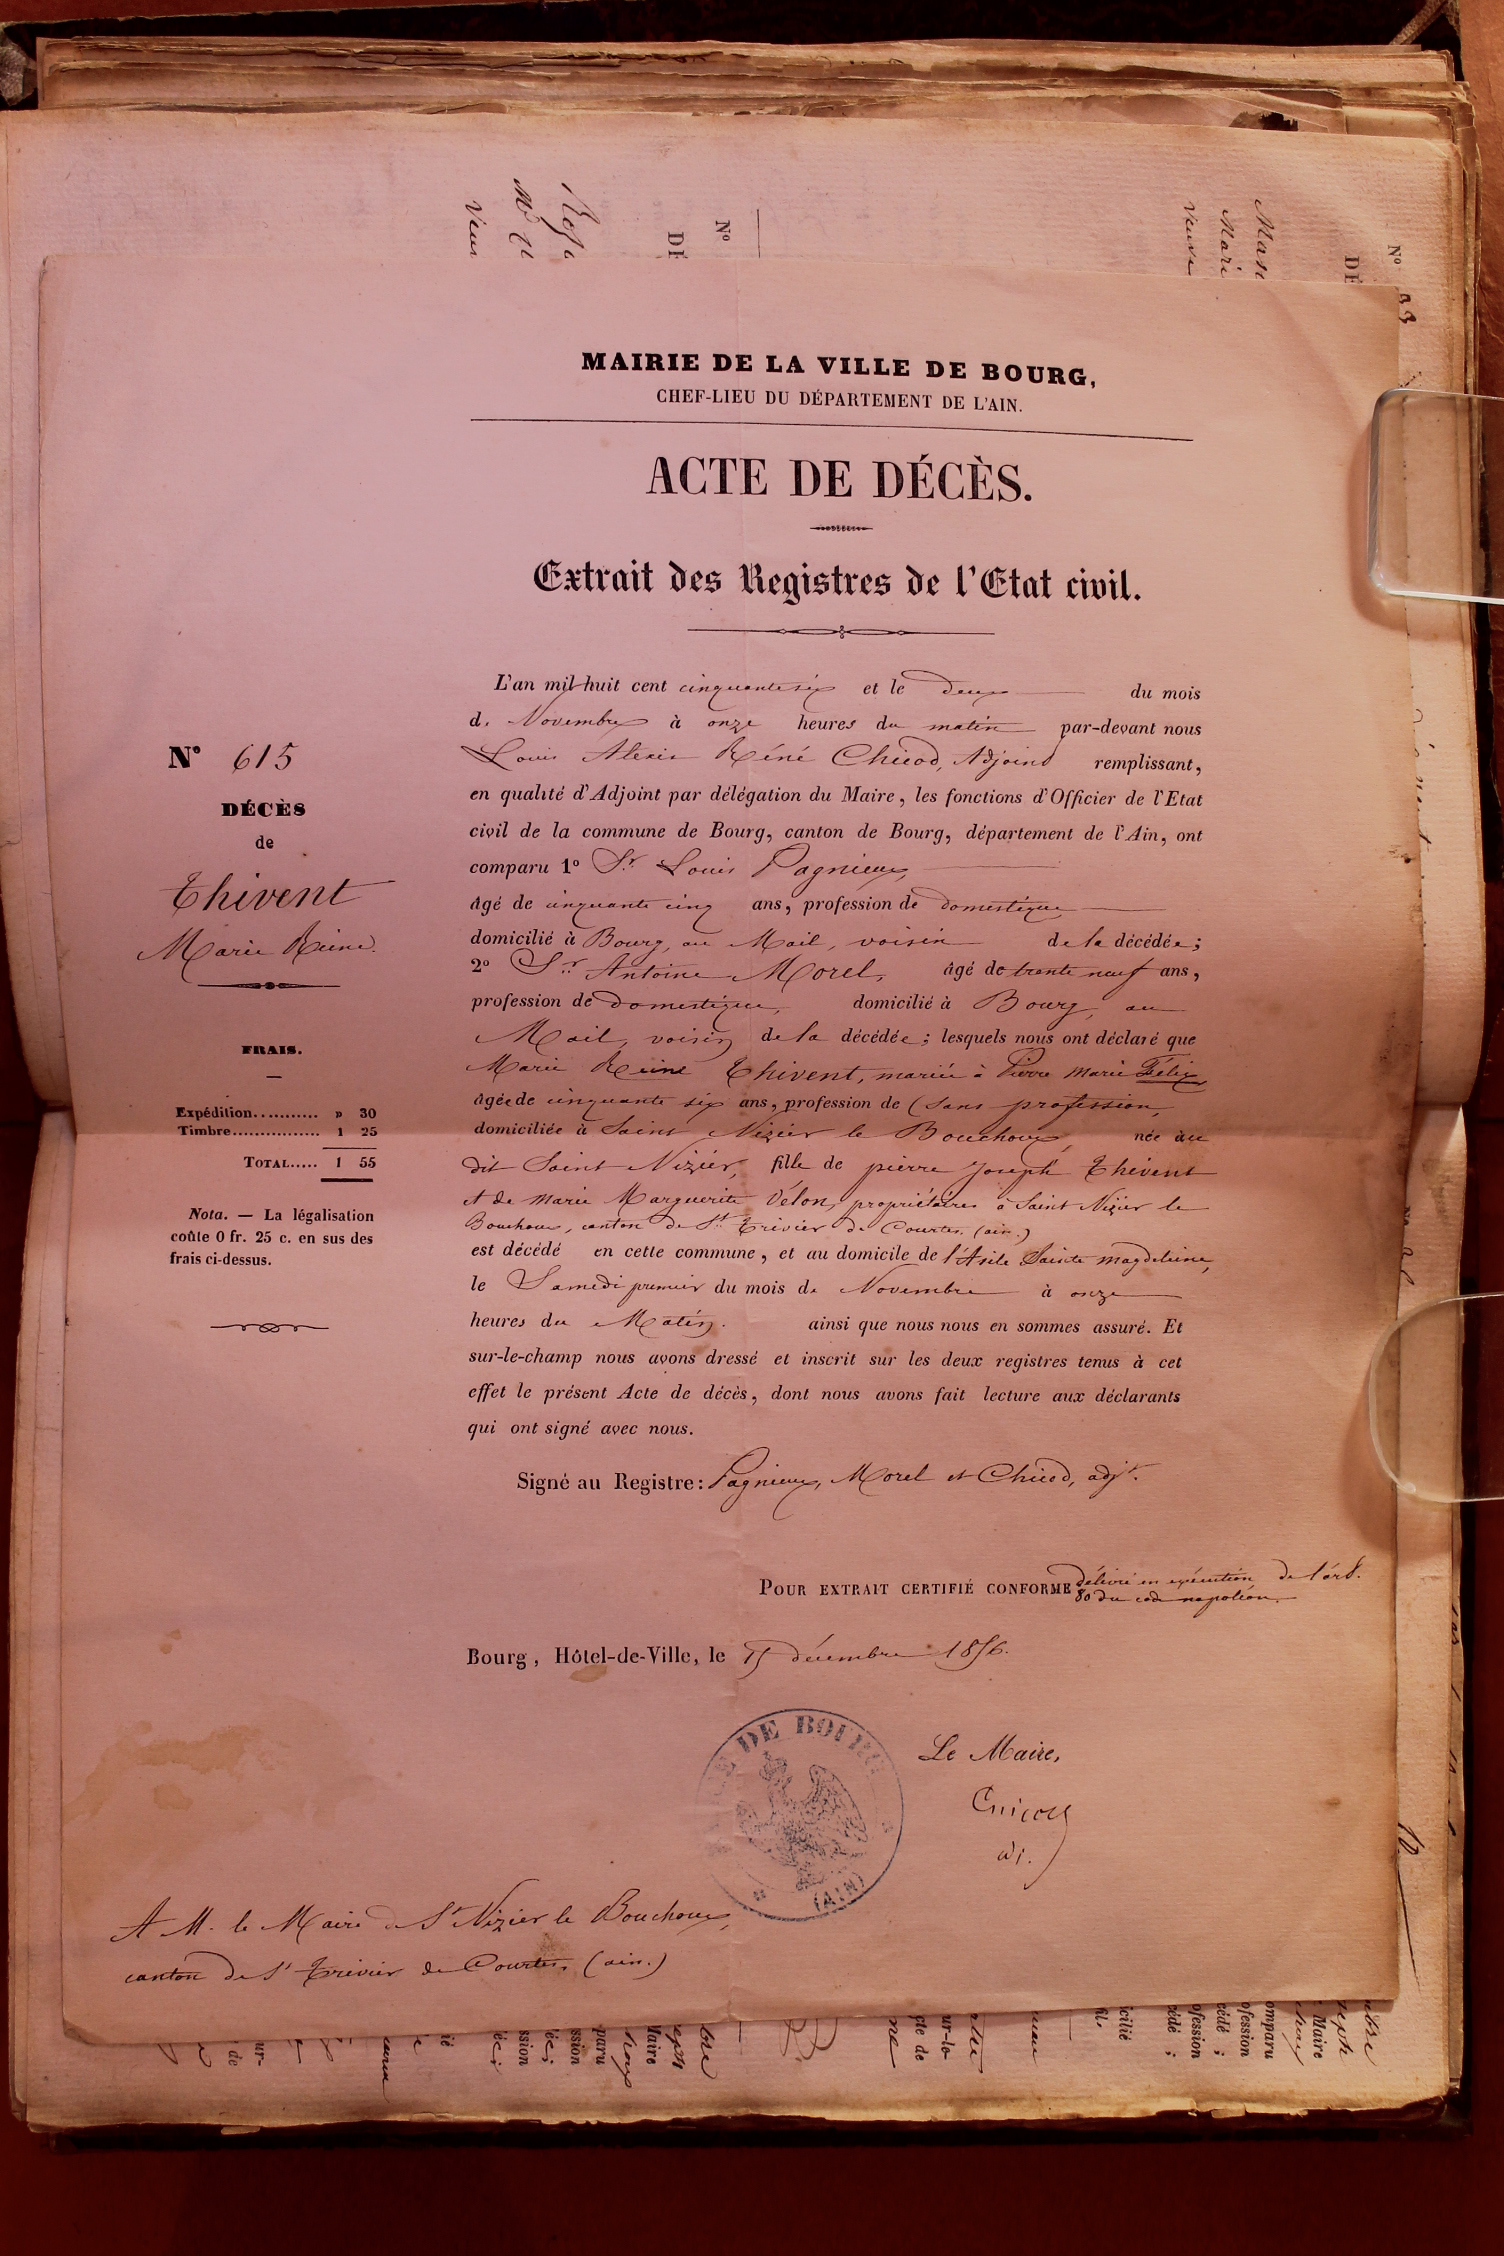 MAIRIE DE LA VILLE DE BOURG,
CHEF-LIEU DU DÉPARTEMENT DE L'AIN.
ACTE DE DÉCÈS.
Extrait des Registres de l'Etat civil.
L'an mil huit cent cinquante six et le deux du mois
d. Novembre à onze heures du matin par-devant nous
Louis Alexis Réné Chicod, Adjoint remplissant,
en qualité d'Adjoint par délégation du Maire, les fonctions d'Officier de l'Etat
civil de la commune de Bourg, canton de Bourg, département de l'Ain, ont
comparu 1° Sr. Louis Pagnieux,
âgé de cinquante cinq ans, profession de domestique
domicilié à Bourg, au Mail, voisin de la décédée;
2° Sr. Antoine Morel, âgé de trente neuf ans,
profession de domestique, domicilié à Bourg, au
Mail, voisin de la décédée; lesquels nous ont déclaré que
Marie Reine Thivent, mariée à Pierre Marie Félix,
âgée de cinquante six ans, profession de (sans profession,
domiciliée à Saint Nizier le Bouchoux, née au
dit Saint Nizier, fille de pierre Joseph Thivent
et de Marie Marguerite Vélon, propriétaires à Saint Nizier le
Bouchoux, canton de St. Trivier de Courtes, (ain.)
est décédé en cette commune, et au domicile de l'Asile Sainte Magdeleine,
le Samedi premier du mois d. Novembre à onze
heures du Matin. ainsi que nous nous en sommes assuré. Et
sur-le-champ nous avons dressé et inscrit sur les deux registres tenus à cet
effet le présent Acte de décès, dont nous avons fait lecture aux déclarants
qui ont signé avec nous.
Signé au Registre: Pagnieux, Morel et Chicod, adjt.
POUR EXTRAIT CERTIFIÉ CONFORME délivré en exécution de l'art.
80 du code napoléon.
Bourg, Hôtel-de-Ville, le 15 décembre 1856.
Le Maire,
Chicod
adj.
DE BOURG
(AIN)
N° 615
DÉCÈS
de
Thivent
Marie Reine.
FRAIS.
Expédition........... » 30
Timbre................ 1 25
TOTAL..... 1 55
Nota. — La légalisation
coûte 0 fr. 25 c. en sus des
frais ci-dessus.
A M. le Maire de St Nizier le Bouchoux,
canton de St Trivier de Courtes, (ain.)
N°
DÉ
N°
DÉ
Mari
Veuve